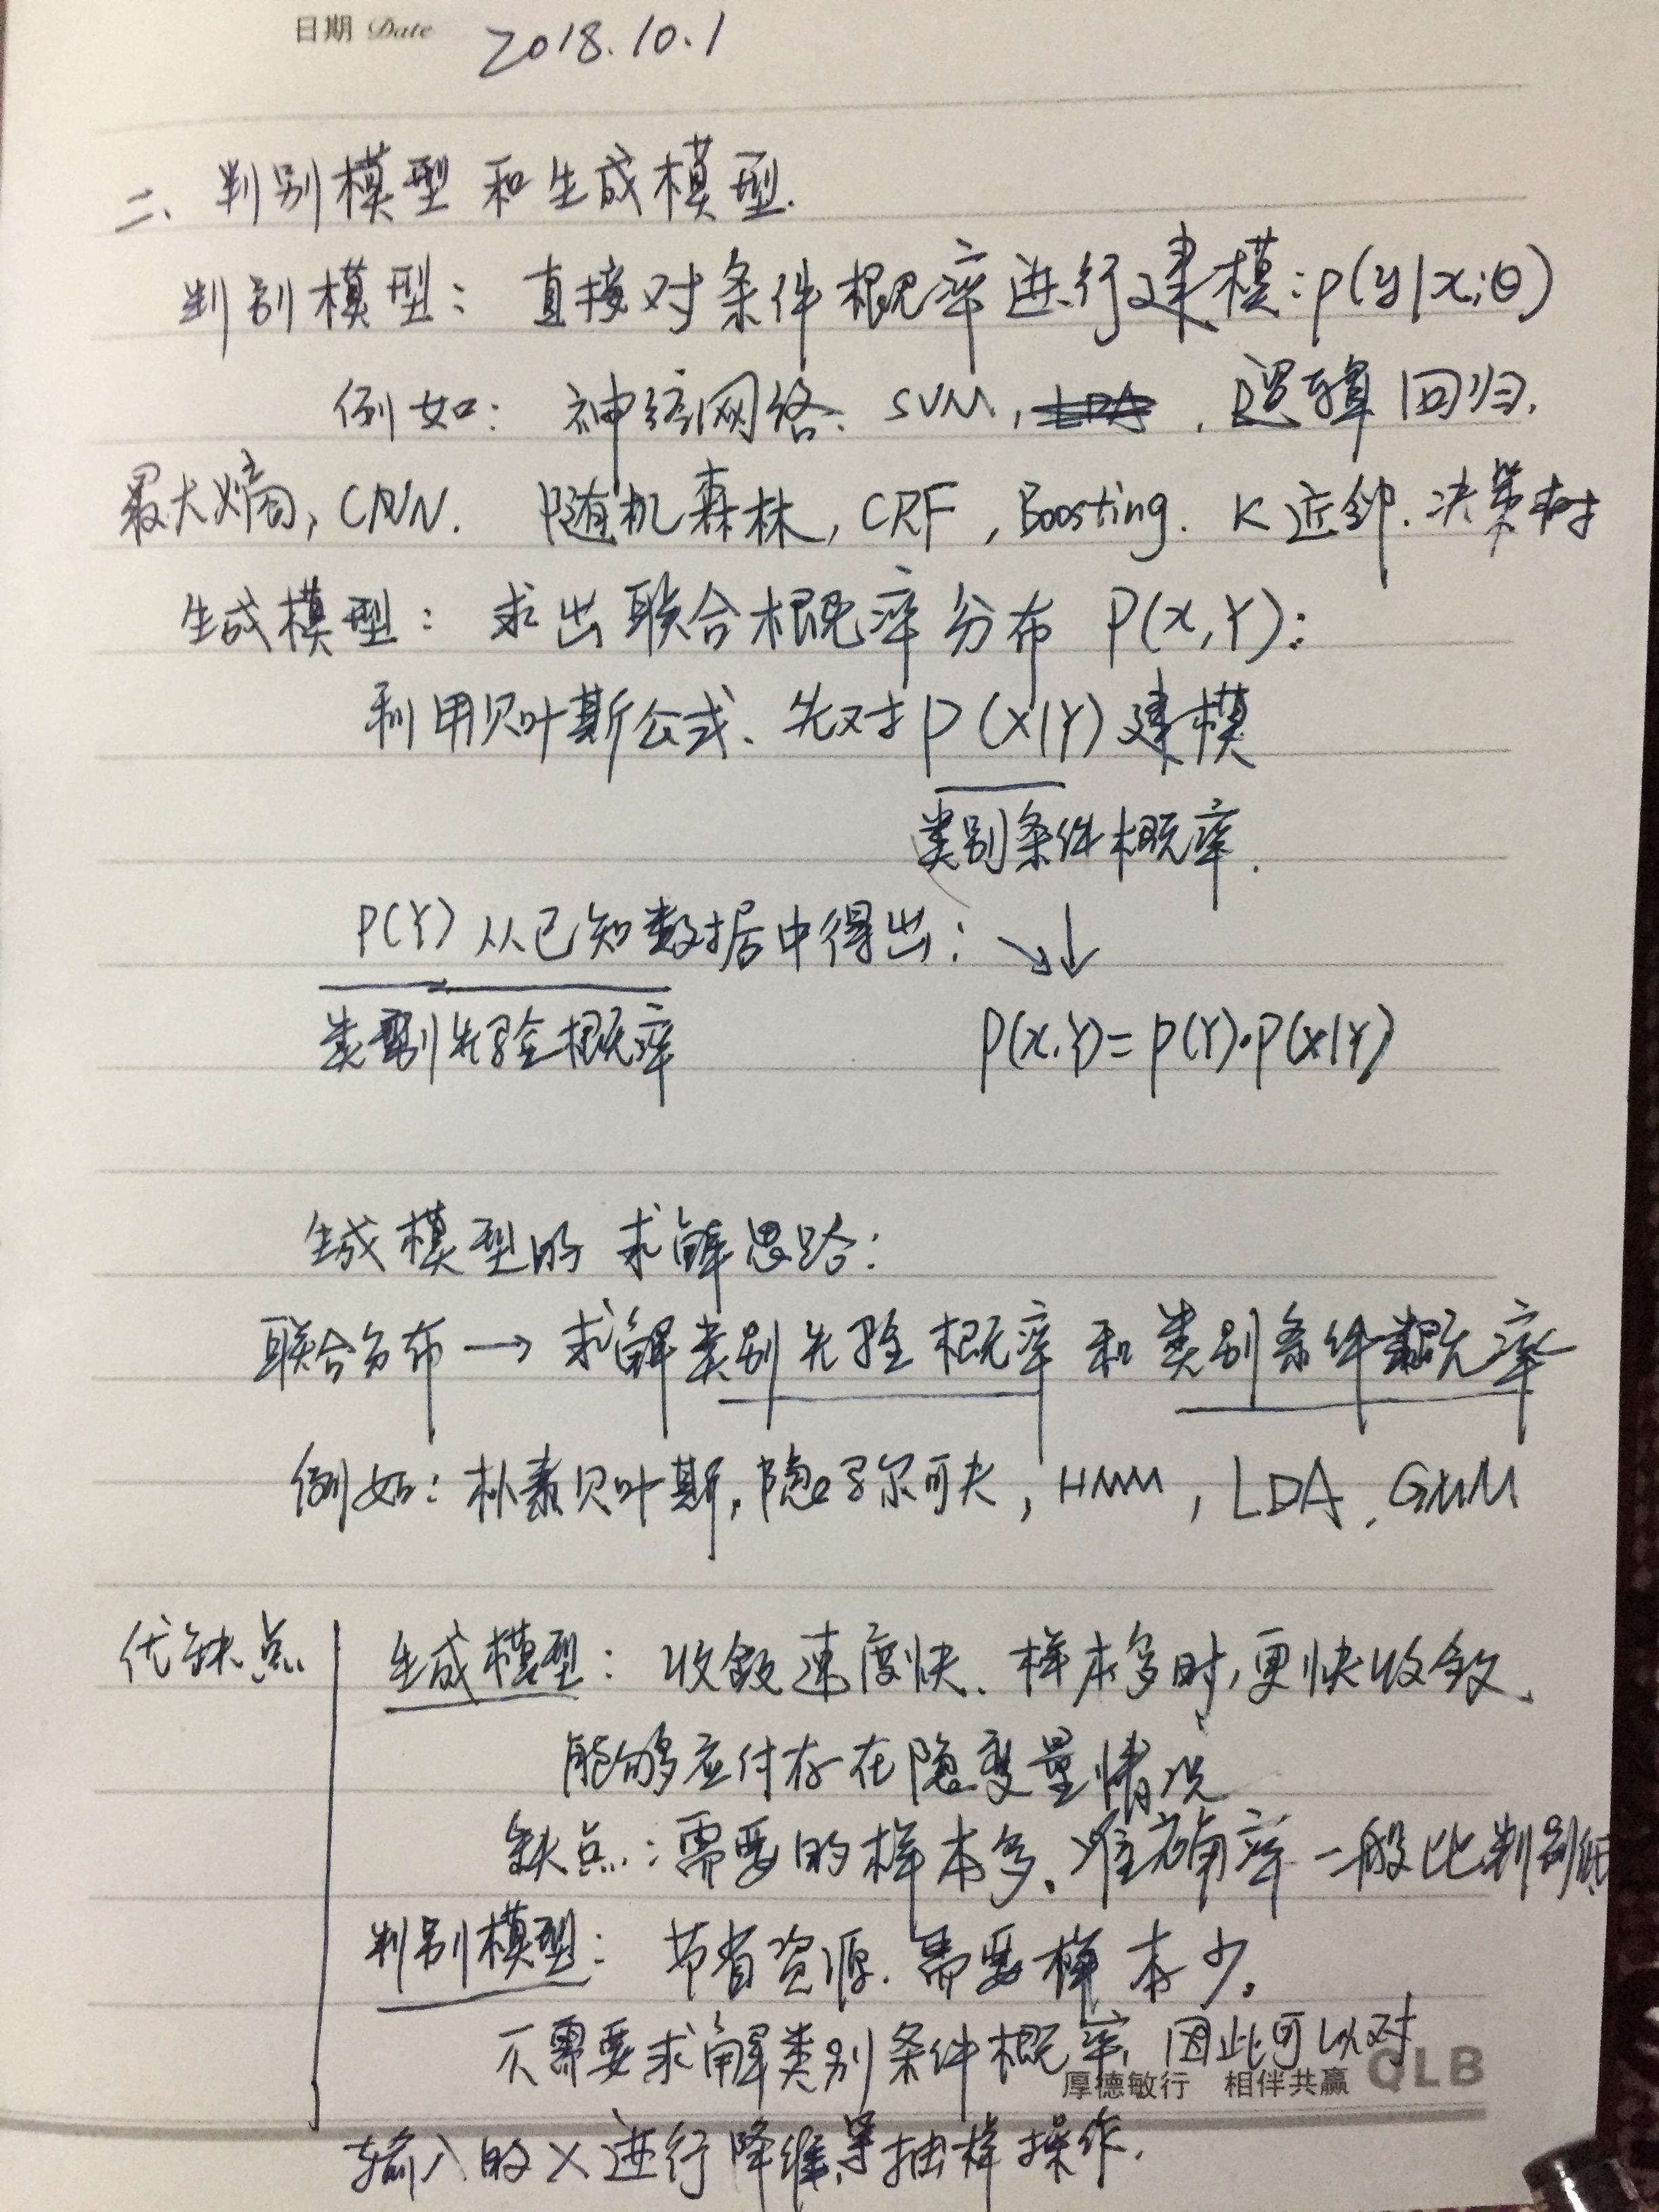 日期 Date 2018.10.1
二、判别模型和生成模型.
判别模型：直接对条件概率进行建模：p(y|x;θ)
例如：神经网络、SVM, , 逻辑回归,
最大熵, CNN. 随机森林, CRF, Boosting. K近邻. 决策树
生成模型：求出联合概率分布 P(x,Y):
利用贝叶斯公式、先对P(X|Y)建模
类别条件概率.
P(Y)从已知数据中得出： ↘↓
类别先验概率 P(x,Y)=P(Y)·P(x|Y)
生成模型的求解思路：
联合分布→求解类别先验概率和类别条件概率
例如：朴素贝叶斯, 隐马尔可夫, HMM, LDA, GMM
优缺点 生成模型：收敛速度快、样本多时,更快收敛、
能够应付存在隐变量情况
缺点：需要的样本多、准确率一般比判别低
判别模型：节省资源. 需要样本少.
不需要求解类别条件概率, 因此可以对
厚德敏行 相伴共赢 QLB
输入的X进行降维等抽样操作.